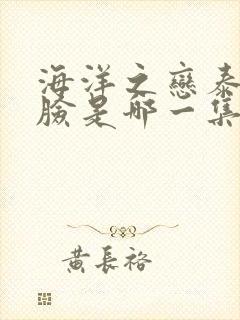 海洋之戀泰
臉是哪一集
黃長裕